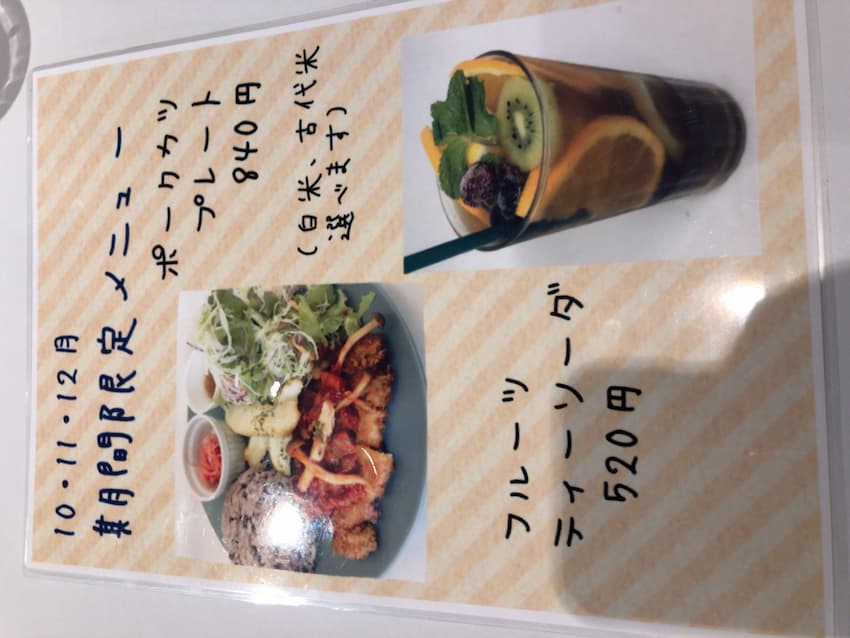 10・11・12月
期間限定メニュー
ポークカツ
プレート
840円
(白米、古代米
選べます)
フルーツ
ティーソーダ
520円